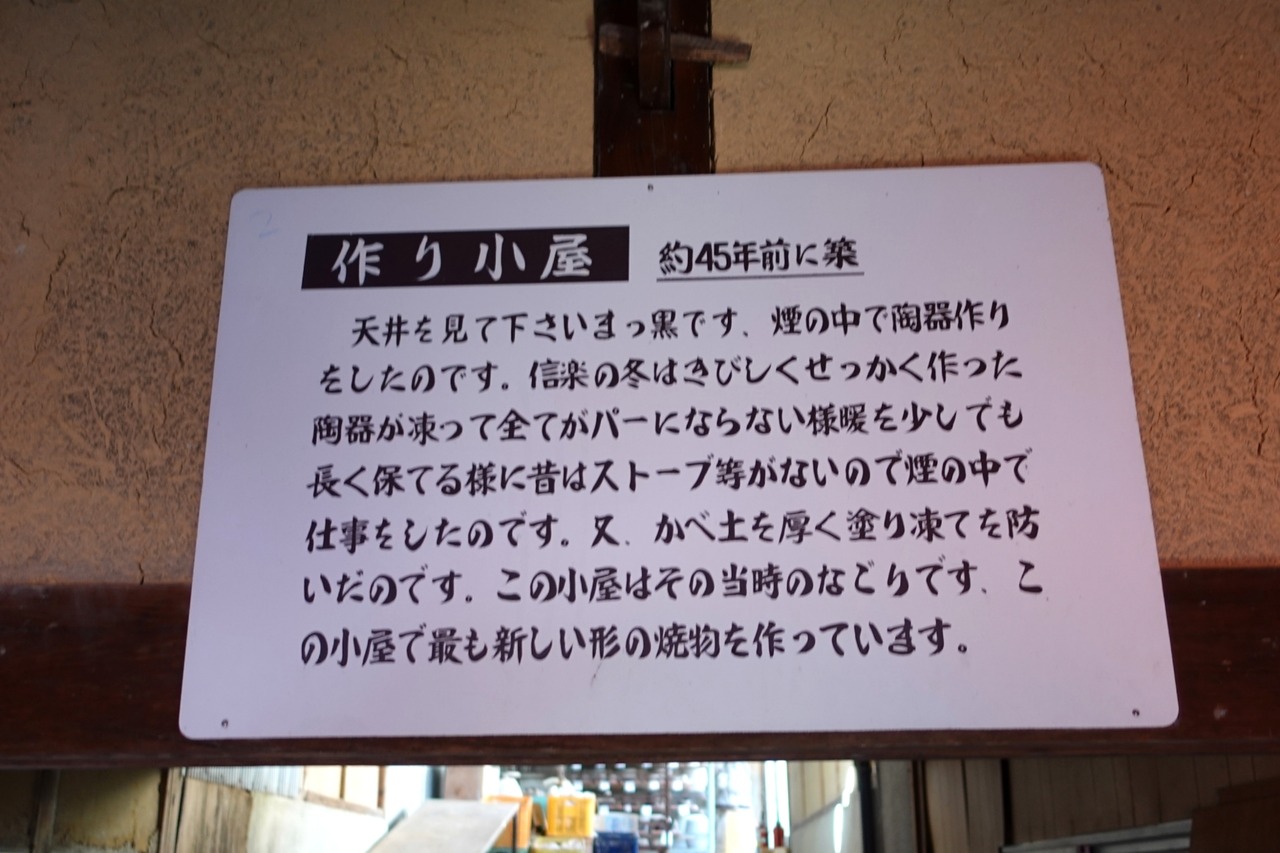 作り小屋 約45年前に築
天井を見て下さいまっ黒です、煙の中で陶器作り
をしたのです。信楽の冬はきびしくせっかく作った
陶器が凍って全てがパーにならない様暖を少しでも
長く保てる様に昔はストーブ等がないので煙の中で
仕事をしたのです。又、かべ土を厚く塗り凍てを防
いだのです。この小屋はその当時のなごりです、こ
の小屋で最も新しい形の焼物を作っています。